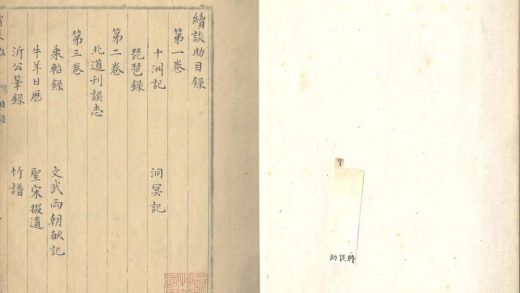 續談助目録
第一卷
十洲記 洞冥記
琵琶録
第二卷
北道刋誤志
第三卷
乘軺録 文武兩朝献記
牛羊日歷 聖宋掇遺
沂公筆録 竹譜
助談續